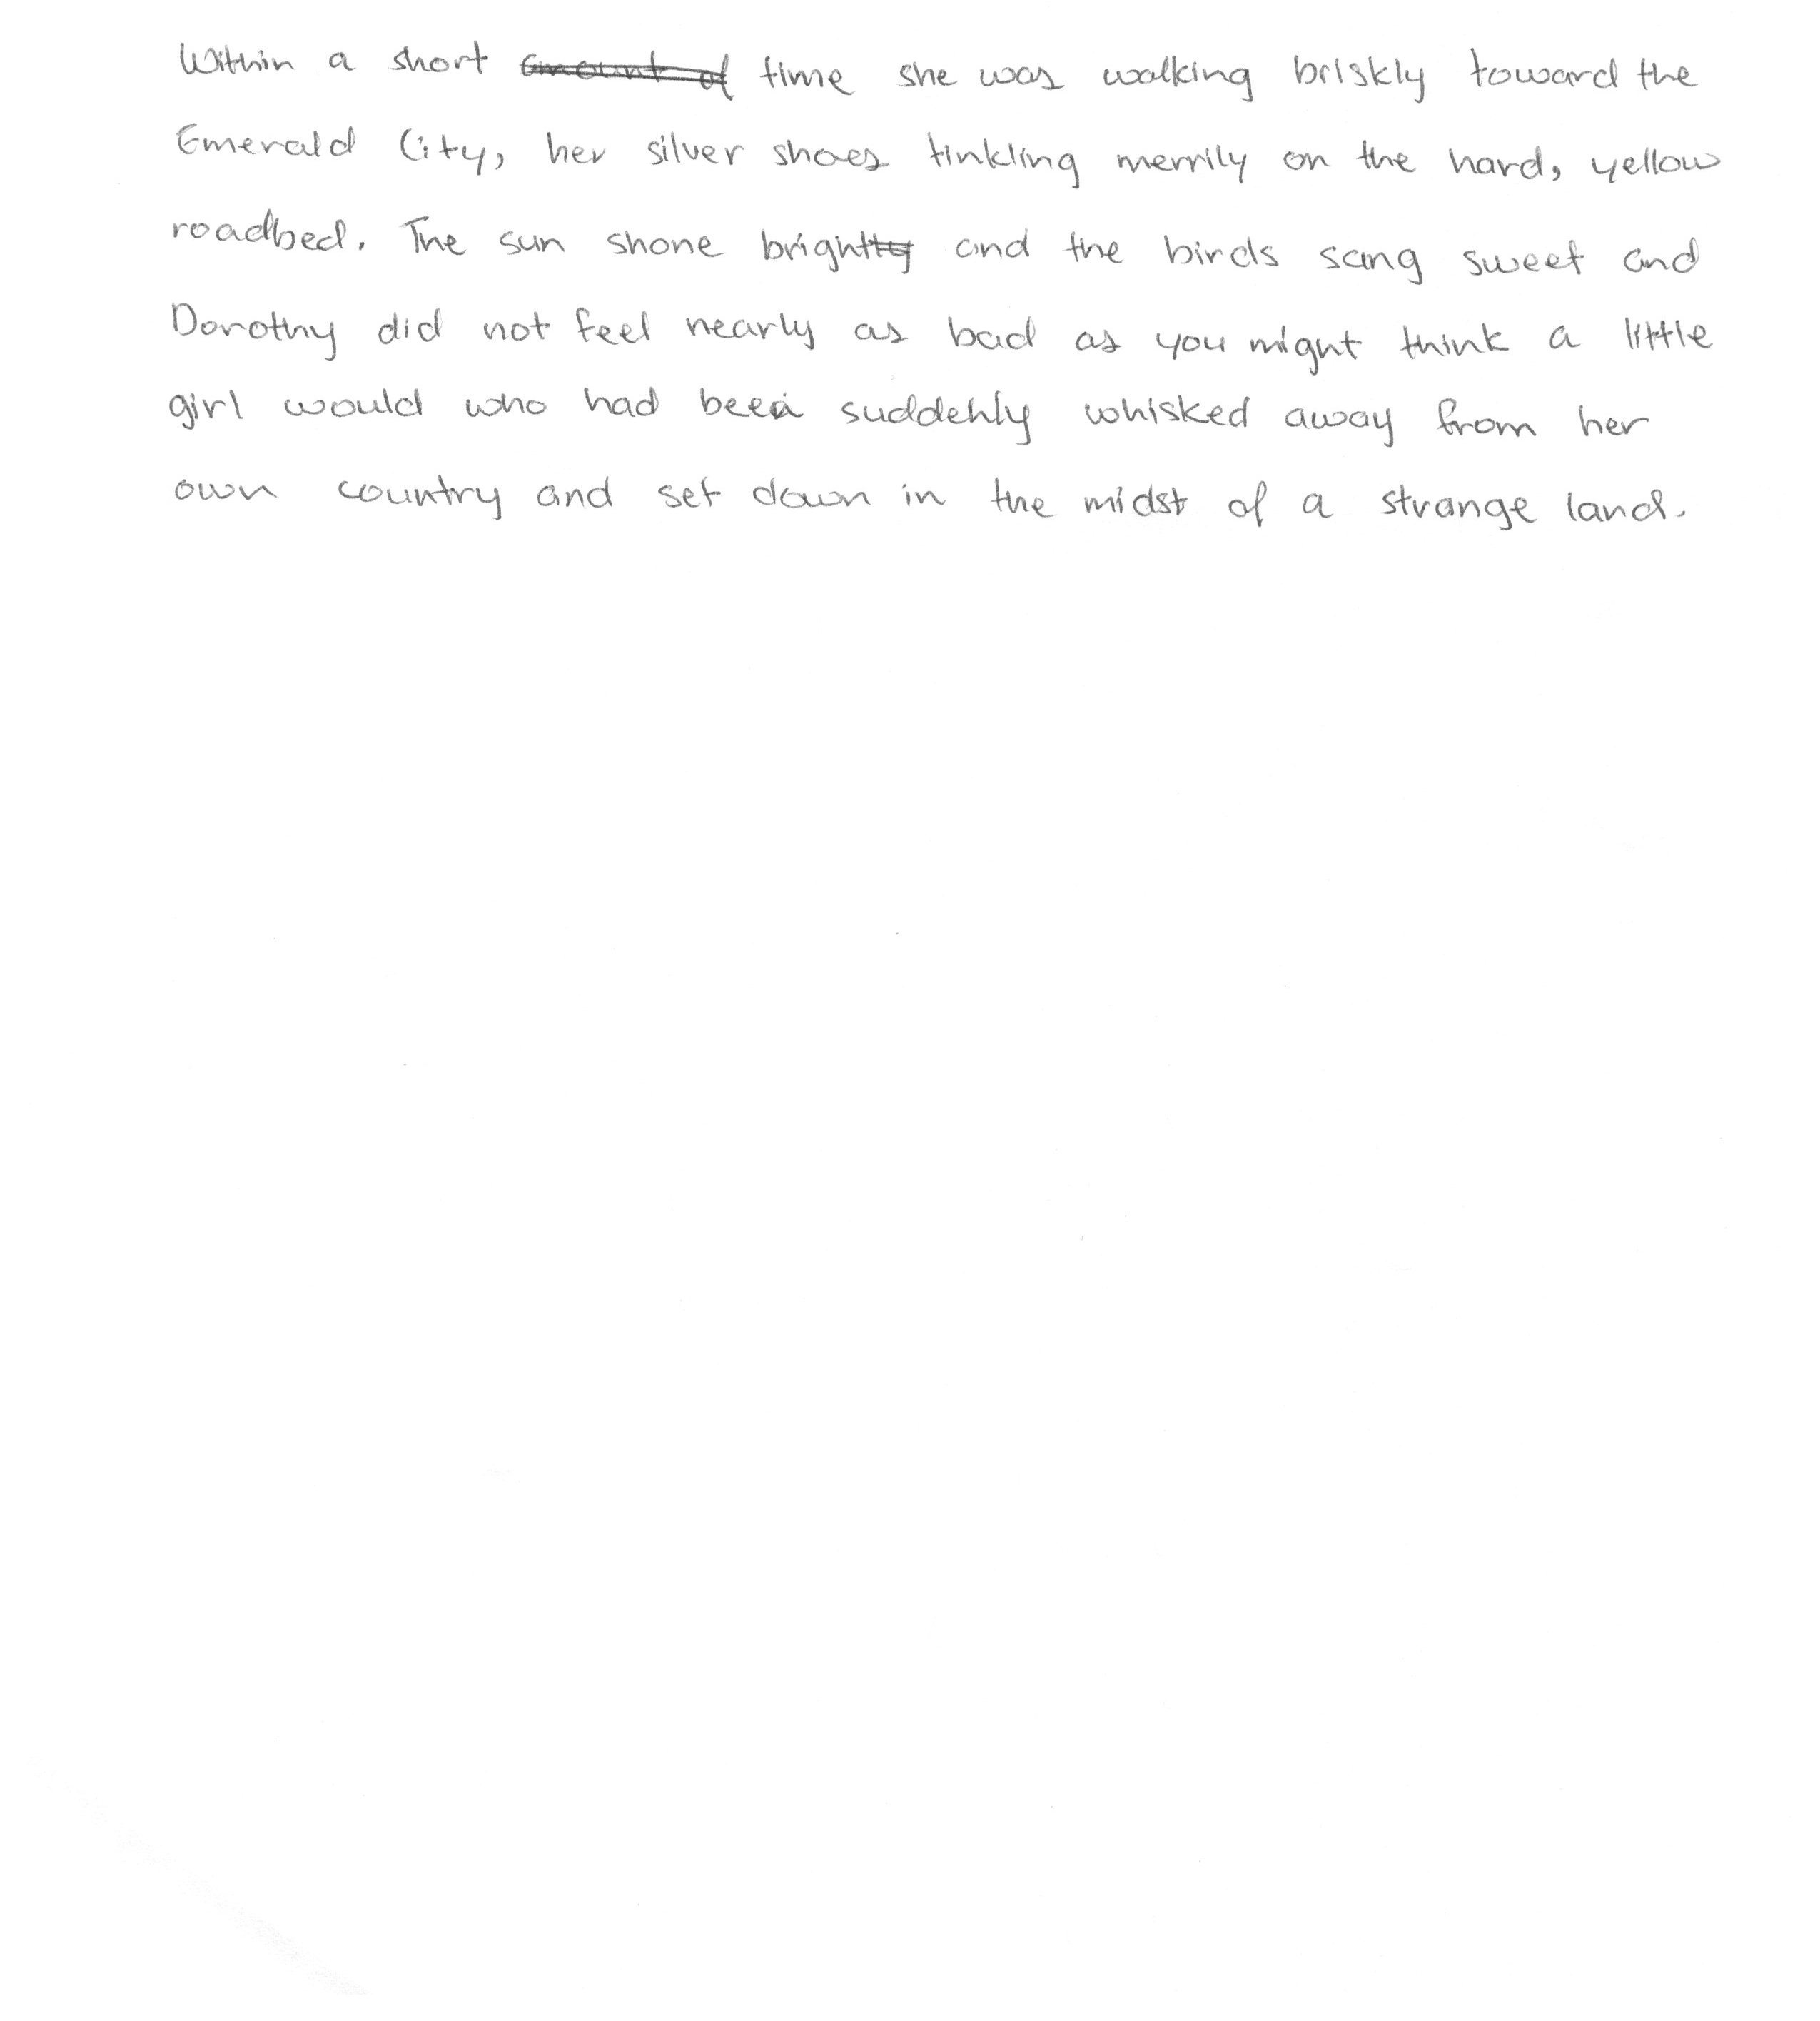 Within a short ~~amount of~~ time she was walking briskly toward the
Emerald City, her silver shoes tinkling merrily on the hard, yellow
roadbed. The sun shone bright~~ly~~ and the birds sang sweet and
Dorothy did not feel nearly as bad as you might think a little
girl would who had been suddenly whisked away from her
own country and set down in the midst of a strange land.